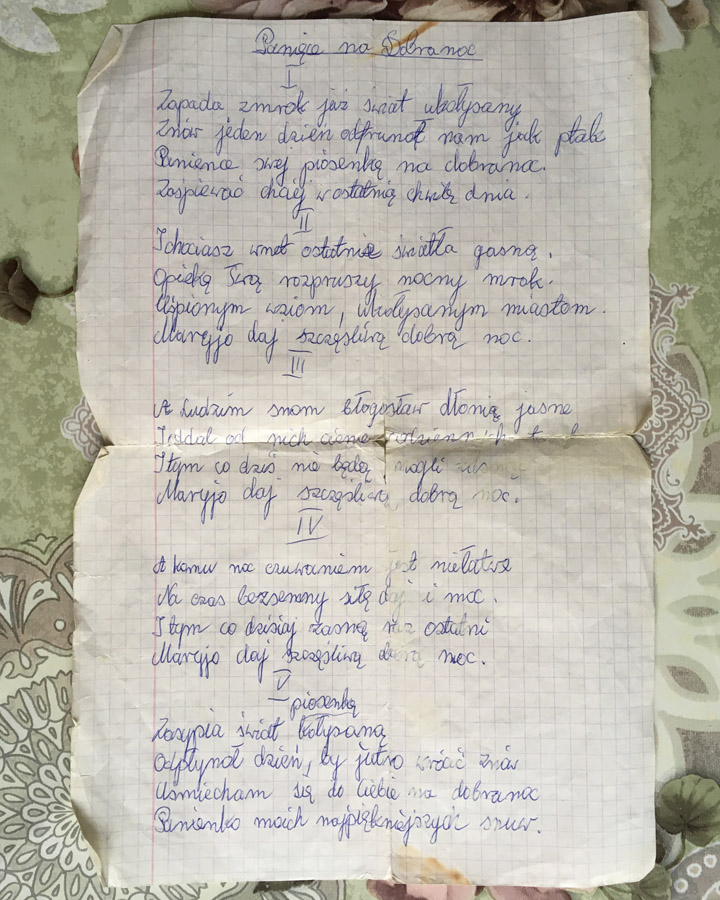 Pieśnia na Dobranoc
I
Zapada zmrok już świat ukołysany
Znów jeden dzień odfrunął nam jak ptak
Panience swej piosenką na dobranoc.
Zaśpiewać chciej w ostatnią chwilę dnia.
II
I chociasz wnet ostatnie światła gasną,
Opieką Twą rozpruszy nocny mrok.
Uśpionym wsiom, ukołysanym miastom.
Maryjo daj szczęśliwą dobrą noc.
III
A Ludzim snom błogosław dłonią jasne
I oddal od nich cienie
I tym co dziś nie będą mogli
Maryjo daj szczęśliwą dobrą noc.
IV
A komu noc czuwaniem jest niełatwe
Na czas bezsenny siłę daj i moc.
I tym co dzisiaj zasną raz ostatni
Maryjo daj szczęśliwą dobrą noc.
V
piosenką
Zasypia świat kołysaną
Odpłynoł dzień, by jutro wrócić znów
Uśmiecham się do Ciebie na dobranoc
Panienko moich najpiękniejszych snuw.